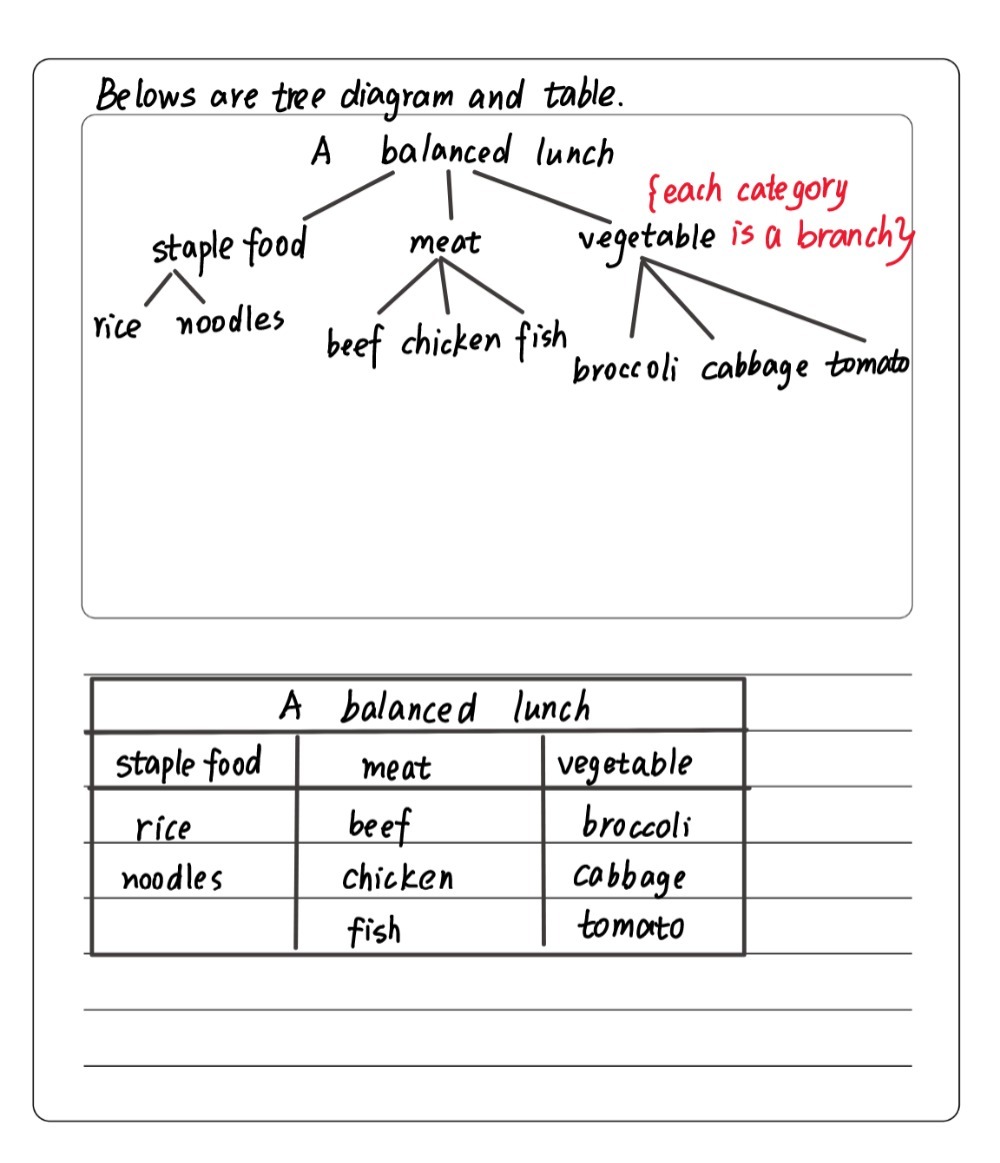 Belows are tree diagram and table.
A balanced lunch
{each category
staple food meat vegetable is a branch}
rice noodles beef chicken fish
broccoli cabbage tomato
A balanced lunch
staple food meat vegetable
rice beef broccoli
noodles chicken cabbage
fish tomato